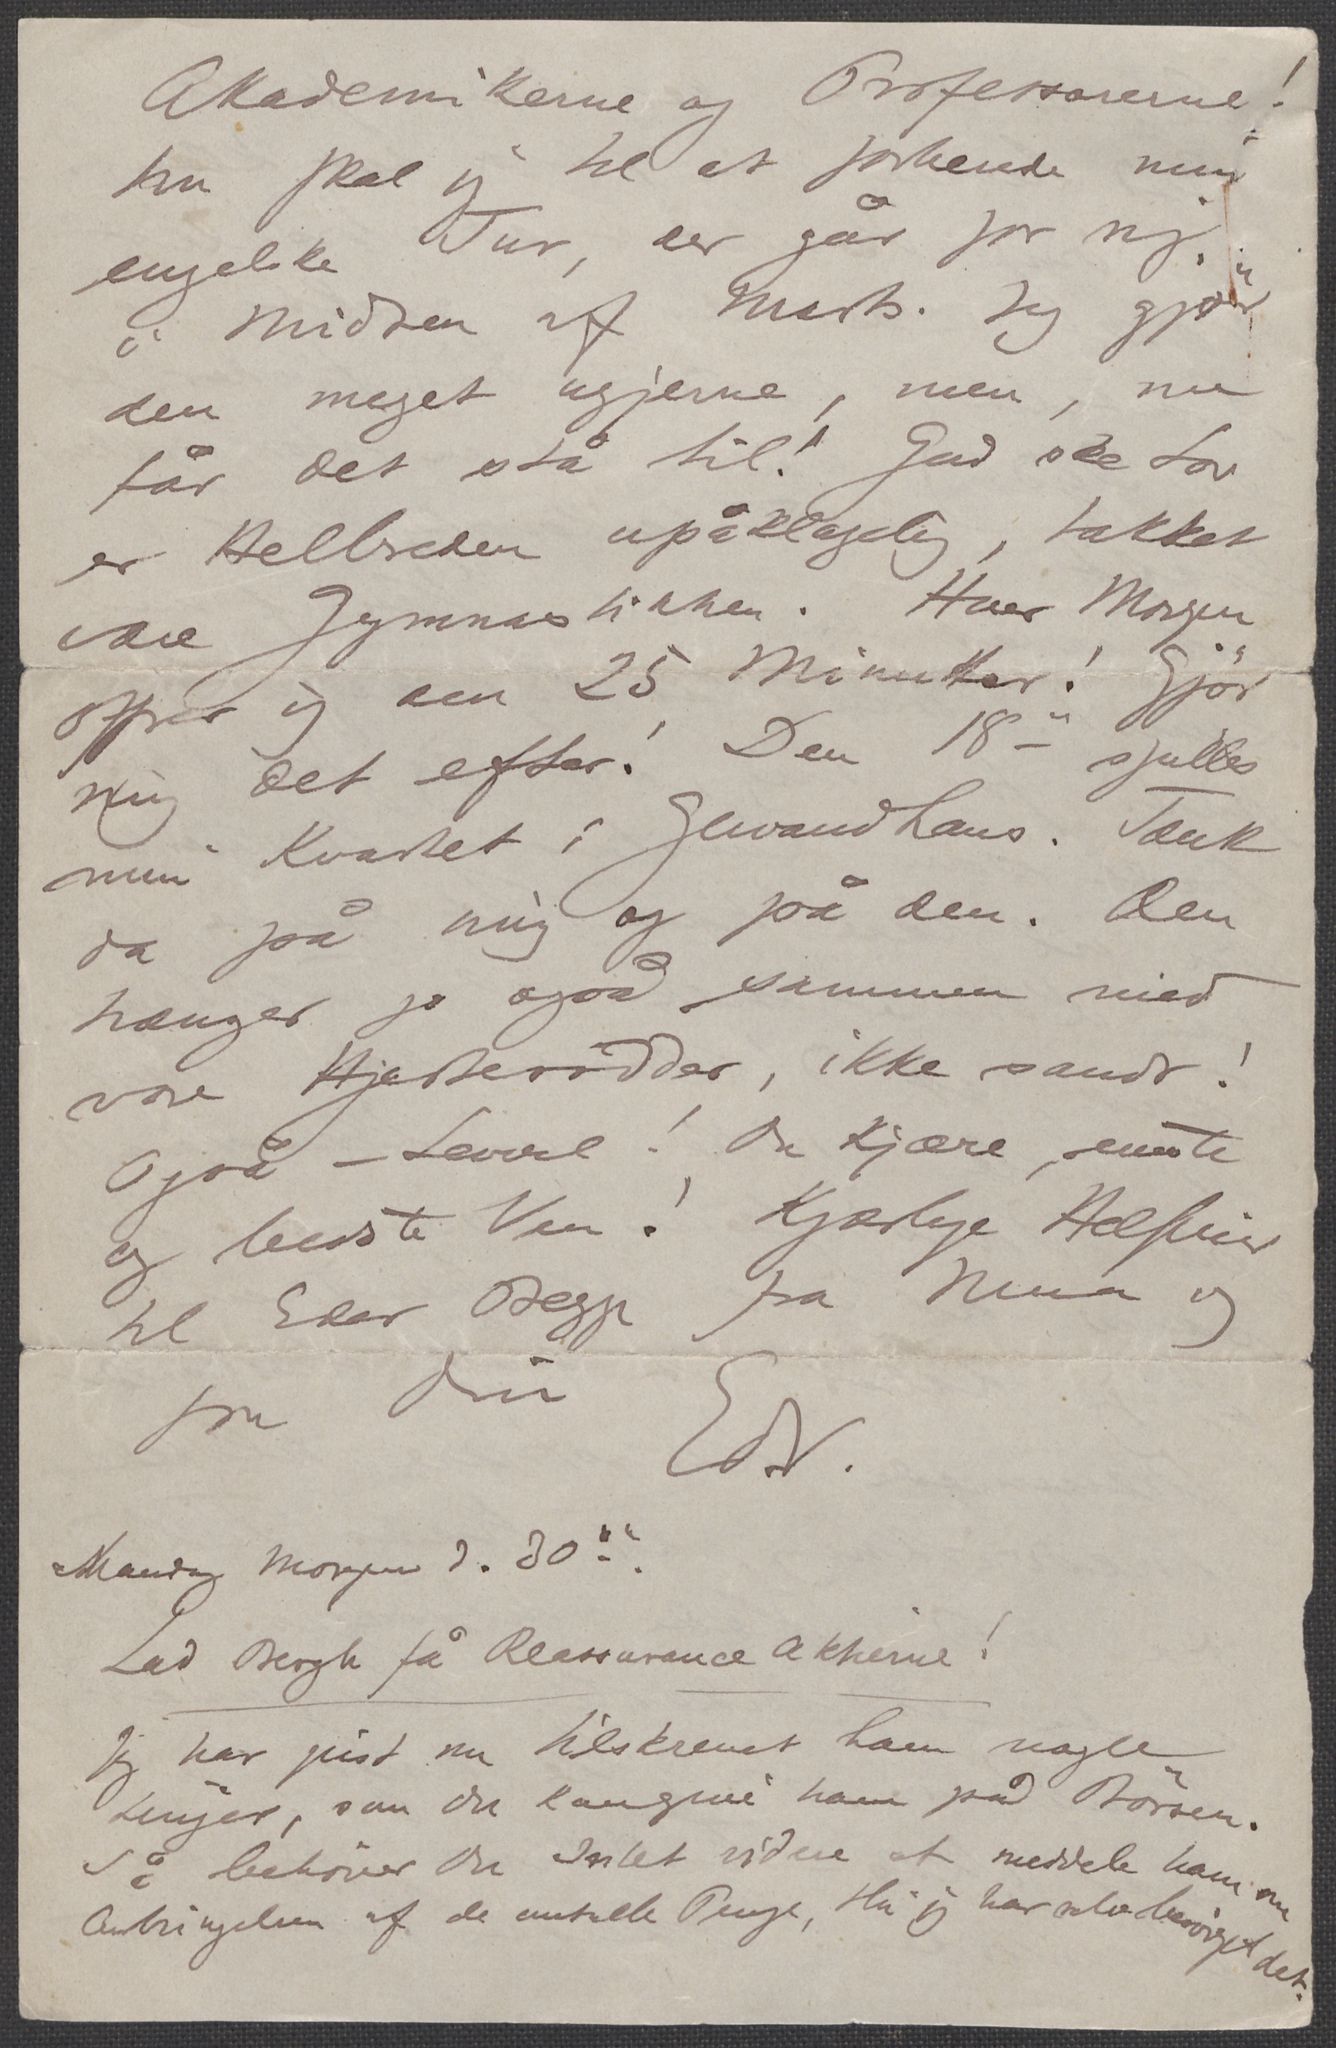 Akademikerne og Professorerne!
Nu skal jeg til at forberede min
engelske Tur, der går for sig
i Midten af Marts. Jeg gjør
den meget ugjerne, men, nu
får det stå til! Gud ske Lov
er Helbreden upåklagelig, takket
være Gymnastikken. Hver Morgen
ofrer jeg den 25 Minutter! Gjør
mig det efter! Den 18de spilles
min Kvartet i Gewandhaus. Tænk
da på mig og på den. Den
hænger jo også sammen med
vore Hjerterødder, ikke sandt!
Også – Levvel! Du kjære, 
og bedste Ven! Kjærlige Hilsener
til Eder Begge fra Nina og
fra din
Edv.
Mandag Morgen d. 30te.
Lad Bergh få Reassurance Aktierne!
Jeg har just nu tilskrevet ham nogle
Linjer, som du kan give ham på Börsen.
Så behöver du Intet videre at meddele ham om
Anbringelsen af de omtalte Penge, thi jeg har selv besörget det.